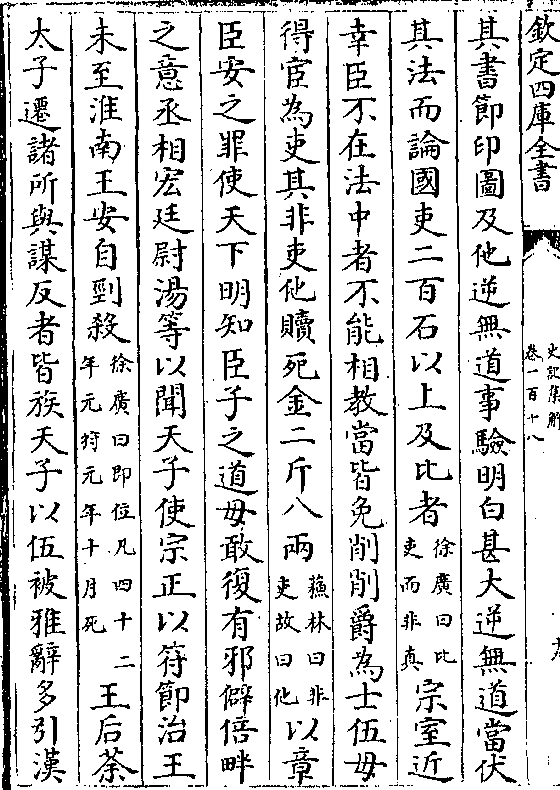 欽定四庫全書
史記集解
卷一百十八
其書節印圖及他逆無道事驗明白甚大逆無道當伏
其法而論國吏二百石以上及比者徐廣曰比吏而非真宗室近
幸臣不在法中者不能相教當皆免削削爵為士伍毋
得宦為吏其非吏他贖死金二斤八兩蘓林曰非吏故曰他以章
臣安之罪使天下明知臣子之道毋敢復有邪僻倍畔
之意丞相宏廷尉湯等以聞天子使宗正以符節治王
未至淮南王安自剄殺徐廣曰即位凡四十二年元狩元年十月死王后荼
太子遷諸所與謀反者皆族天子以伍被雅辭多引漢